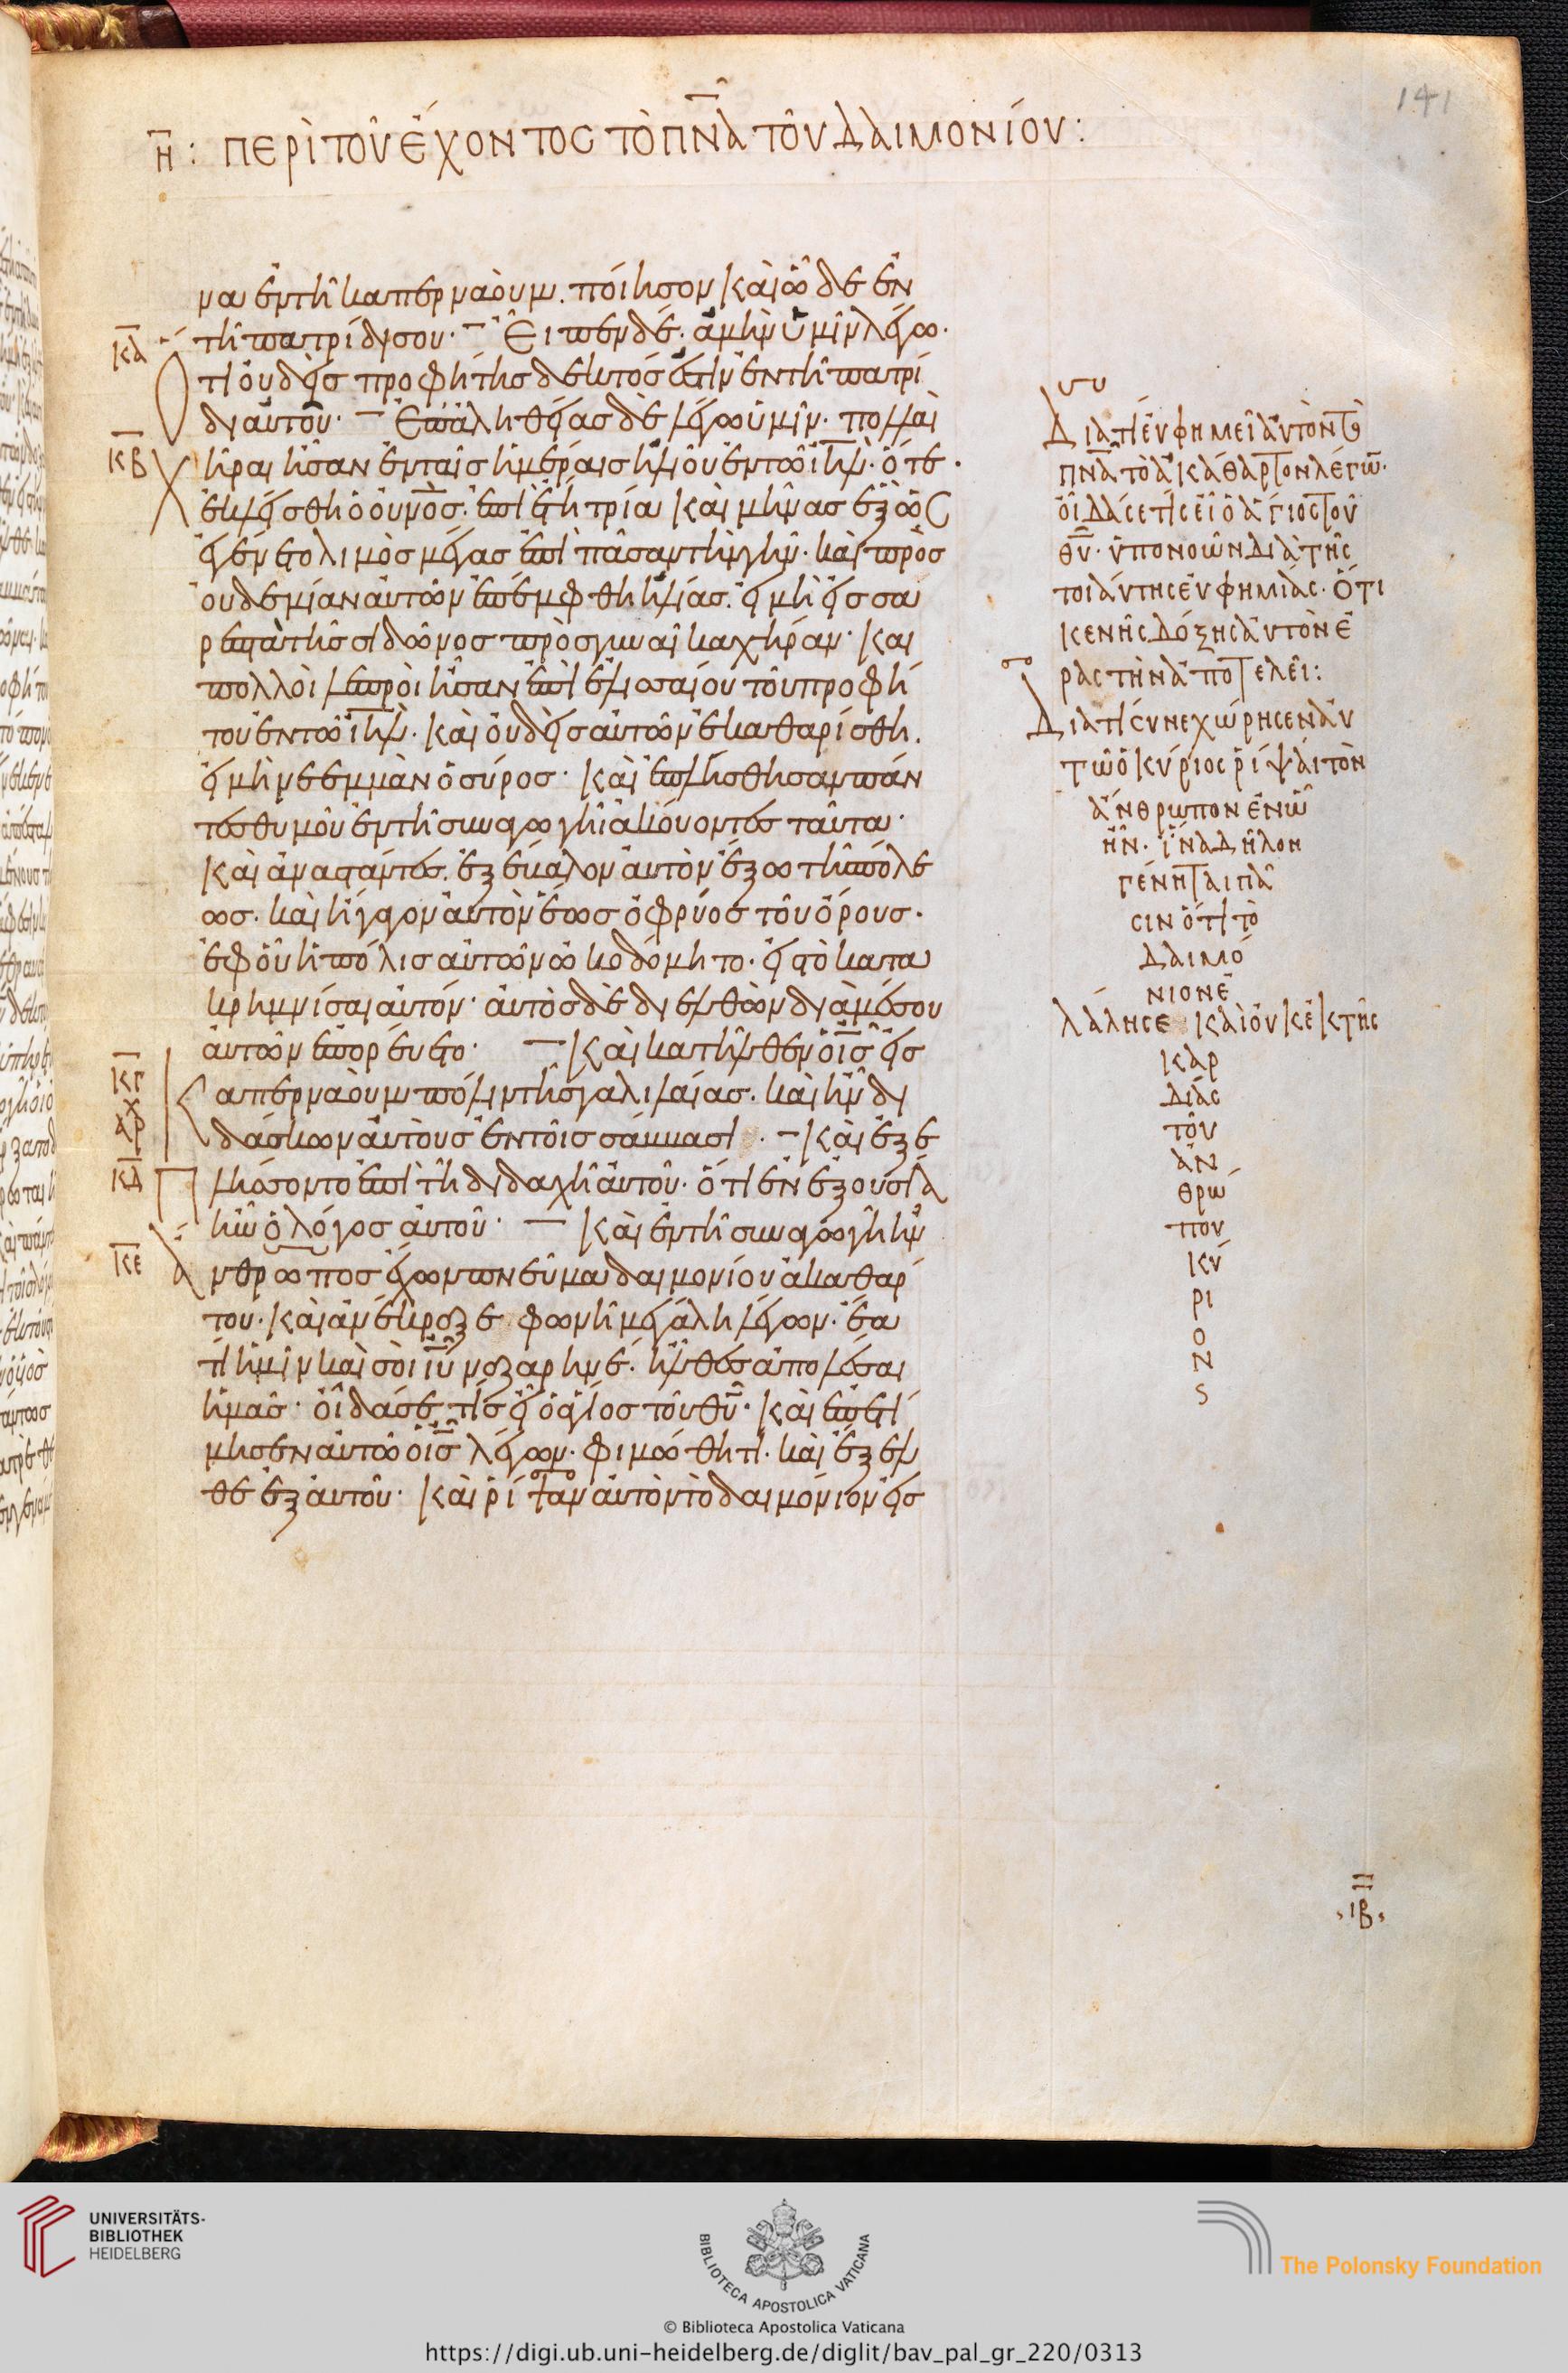 Η̅ : ΠΕΡῚ ΤΟΥ͂ ἜΧΟΝΤΟC ΤῸ ΠΝ̅Α ΤΟΥ͂ ΔΑΙΜΟΝΊΟΥ:
να ἐν τῆ καπερναοὺμ. ποίησον καὶ ὧδε ἐν
ΚΑ τῆ πατρίδι σου· Εἶπεν δέ· ἀμὴν ὑμῖν λέγω·
ὅτι οὐδεὶς προφήτης δεκτός ἐστιν ἐν τῆ πατρί
δι αὐτοῦ· Ἐπἀληθείας δὲ λέγω ὑμῖν· πολλαὶ
ΚΒ χῆραι ἦσαν ἐν ταῖς ἡμέραις ἡλιοῦ ἐν τῶ ἰη̅λ· ὅτε·
ἐκλείσθη ὁ οὐν̅ὸς. ἐπὶ ἔτη τρία καὶ μῆνας ἓξ ὡς
ἐγένετο λιμὸς μέγας ἐπὶ πᾶσαν τὴν γῆν· καὶ πρὸς
οὐδεμίαν αὐτῶν ἐπέμφθη ἡλίας. εἰ μὴ εἰς σα
ρεπτὰ τῆς σιδῶνος πρὸς γυναῖκα χήραν· Και
πολλοὶ λεπροὶ ἦσαν ἐπὶ ἐλισσαίου τοῦ προφή
του ἐν τῶ ἰη̅λ· καὶ οὐδεὶς αὐτῶν ἐκαθαρίσθη.
εἰ μὴ νεεμμὰν ὁ σύρος· Καὶ ἐπλήσθησαν πάν
τες θυμοῦ ἐν τῆ συναγωγῆ ἀκούοντες ταῦτα·
Καὶ ἀναστάντες. ἐξέβαλον αὐτὸν ἔξω τῆς πόλε
ως. καὶ ἤγαγον αὐτὸν ἕως ὀφρύος τοῦ ὄρους·
ἐφοὗ ἡ πόλις αὐτῶν ὠκοδόμητο· εἰς τὸ κατα
κρημνίσαι αὐτόν· αὐτὸς δὲ διελθὼν διὰ μέσου
αὐτῶν ἐπορεύετο· Καὶ κατῆλθεν ὁ ἰ̅ς εἰς
ΚΓ καπερναοὺμ πόλιν τῆς γαλιλαίας. καὶ ἦν δι
ΑΡΧ δάσκων αὐτοὺς ἐν τοῖς σάββασι· Καὶ ἐξε
ΚΔ πλήσσοντο ἐπὶ τῆ διδαχῆ αὐτοῦ· ὅτι ἐν ἐξουσία
ἦν ὁ λόγος αὐτοῦ· Καὶ ἐν τῆ συναγωγῆ ἦν
ΚΕ ἄνθρωπος ἔχων πνεῦμα δαιμονίου ἀκαθάρ
του· Καὶ ἀνέκραξε φωνῆ μεγάλη λέγων· ἔα
τί ἡμῖν καὶ σοὶ ἰ̅υ ναζαρηνέ. ἦλθες ἀπολέσαι
ἡμᾶς· οἶδά σε τίς εἶ ὁ ἅγιος τοῦ θ̅υ· Καὶ ἐπετί
μησεν αὐτῶ ὁ ἰ̅ς λέγων· φιμώθητι. καὶ ἔξελ
θε ἐξ αὐτοῦ· Καὶ ῥίψαν αὐτὸν τὸ δαιμόνιον εἰς
ΔΙΑΤΙ ΕΥΦΗΜΕΙ ΑΥΤΟΝ ΤΟ
ΠΝ̅Α ΤΟ ΑΚΑΘΑΡΤΟΝ ΛΕΓΩΝ·
ΟΙΔΑ CΕ ΤΙC ΕΙ Ο ΑΓΙΟC ΤΟΥ
Θ̅Υ· ΥΠΟΝΟΩΝ ΔΙΑ ΤΗC
ΤΟΙΑΥΤΗC ΕΥΦΗΜΙΑC· ΟΤΙ
ΚΕΝΗC ΔΟΞΗC ΑΥΤΟΝ Ε
ΡΑCΤΗΝ ΑΠΟΤΕΛΕΙ:
ΔΙΑΤΙ CΥΝΕΧΩΡΗCΕΝ ΑΥ
ΤΩ Ο ΚΥΡΙΟC ΡΙΨΑΙ ΤΟΝ
ΑΝΘΡΩΠΟΝ ΕΝ Ω
ΗΝ· ΙΝΑ ΔΗΛΟΝ
ΓΕΝΗΤΑΙ ΠΑ
CΙΝ ΟΤΙ ΤΟ
ΔΑΙΜΟ
ΝΙΟΝ Ε
ΛΑΛΗCΕ ΚΑΙ ΟΥΚ ΕΚ ΤΗC
ΚΑΡ
ΔΙΑC
ΤΟΥ
ΑΝ
ΘΡΩ
ΠΟΥ
ΚΥ
ΡΙ
Ο
Ν
S
ΙΒ
141
UNIVERSITÄTS-
BIBLIOTHEK
HEIDELBERG
BIBLIOTECA APOSTOLICA VATICANA
The Polonsky Foundation
© Biblioteca Apostolica Vaticana
https://digi.ub.uni-heidelberg.de/diglit/bav_pal_gr_220/0313